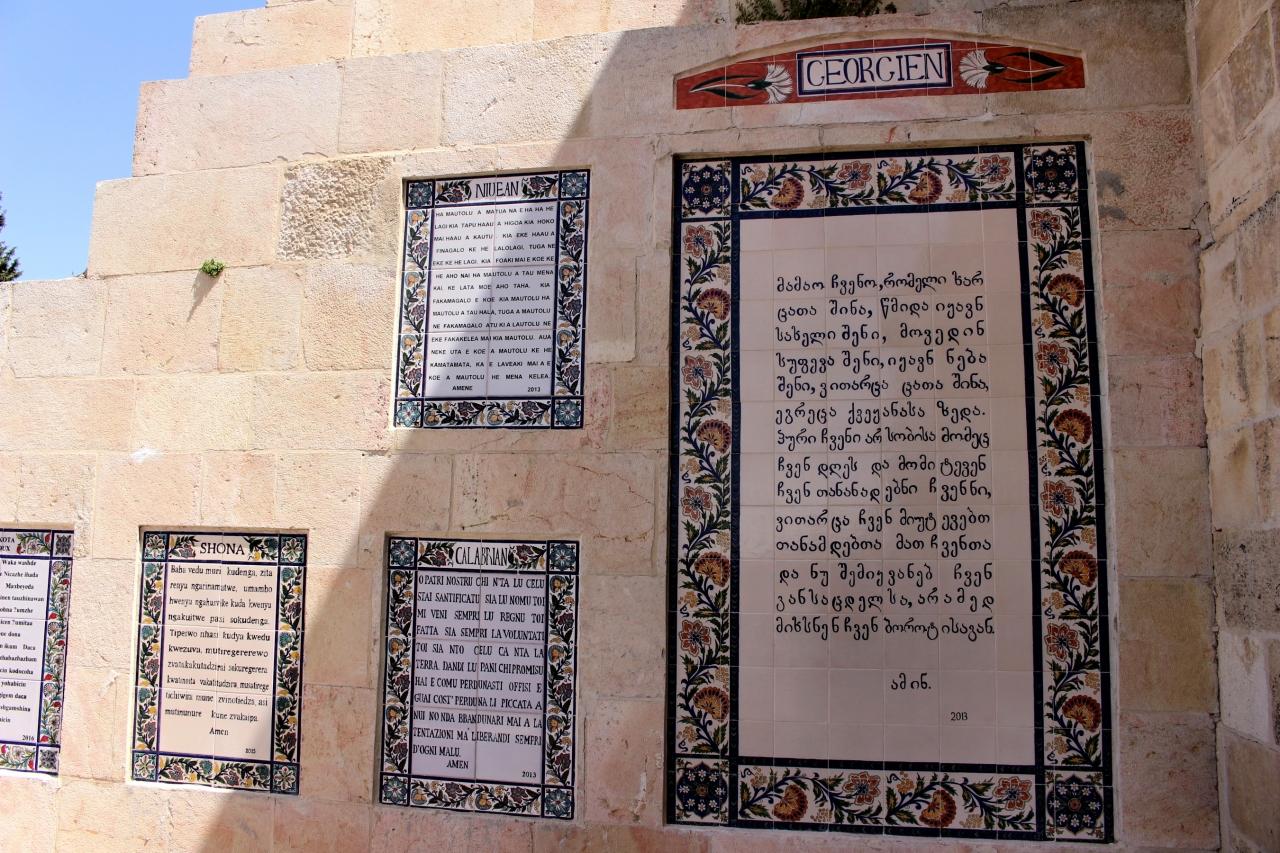 GEORGIEN
მამაო ჩვენო, რომელი ხარ
ცათა შინა, წმიდა იყავნ
სახელი შენი, მოვედინ
სუფევა შენი, იყავნ ნება
შენი, ვითარცა ცათა შინა,
ეგრეცა ქვეყანასა ზედა.
პური ჩვენი არსობისა მომეც
ჩვენ დღეს და მომიტევენ
ჩვენ თანანადებნი ჩვენნი,
ვითარცა ჩვენ მიუტევებთ
თანამდებთა მათ ჩვენთა
და ნუ შემიყვანებ ჩვენ
განსაცდელსა, არამედ
მიხსნენ ჩვენ ბოროტისაგან.
ამინ.
2013
NIUEAN
HA MAUTOLU A MATUA NA E HA HA HE
LAGI KIA TAPU HAAU A HIGOA KIA HOKO
MAI HAAU A KAUTU KIA EKE HAAU A
FINAGALO KE HE LALOLAGI, TUGA NE
EKE KE HE LAGI. KIA FOAKI MAI E KOE KE
HE AHO NAI HA MAUTOLU A TAU MENA
KAI KE LATA MOE AHO TAHA. KIA
FAKAMAGALO E KOE KIA MAUTOLU HA
MAUTOLU A TAU HALA, TUGA A MAUTOLU
NE FAKAMAGALO ATU KI A LAUTOLU NE
EKE FAKAKELEA MAI KIA MAUTOLU. AUA
NEKE UTA E KOE A MAUTOLU KE HE
KAMATAMATA, KA E LAVEAKI MAI A E
KOE A MAUTOLU HE MENA KELEA.
AMENE 2013
CALABRIANO
O PATRI NOSTRU CHI N'TA LU CELU
STAI SANTIFICATU SIA LU NOMU TOI
MI VENI SEMPRI LU REGNU TOI
FATTA SIA SEMPRI LA VOLUNTATI
TOI SIA NTO CELU CA NTA LA
TERRA. DANDI LU PANI CHI PROMISU
HAI E COMU PERDUNASTI OFFISI E
GUAI COSI' PERDUNA LI PICCATA A
NUI NO NDA BBANDUNARI MAI A LA
TENTAZIONI MA' LIBERANDI SEMPRI
D'OGNI MALU.
AMEN 2013
SHONA
Baba vedu muri kudenga, zita
renyu ngarinamatwe, umambo
hwenyu ngahuuyike kuda kwenyu
ngakuitwe pasi sokudenga.
Tipeiwo nhasi kudya kwedu
kwezuva, mutiregererewo
zvatakakutadzirai sokuregerera
kwatinoita vakatitadzira, musatirege
tichiwira mune zvinotiedza, asi
mutinunure kune zvakaipa.
Amen
2015
Waka washde
Nicazhe ihada
2016